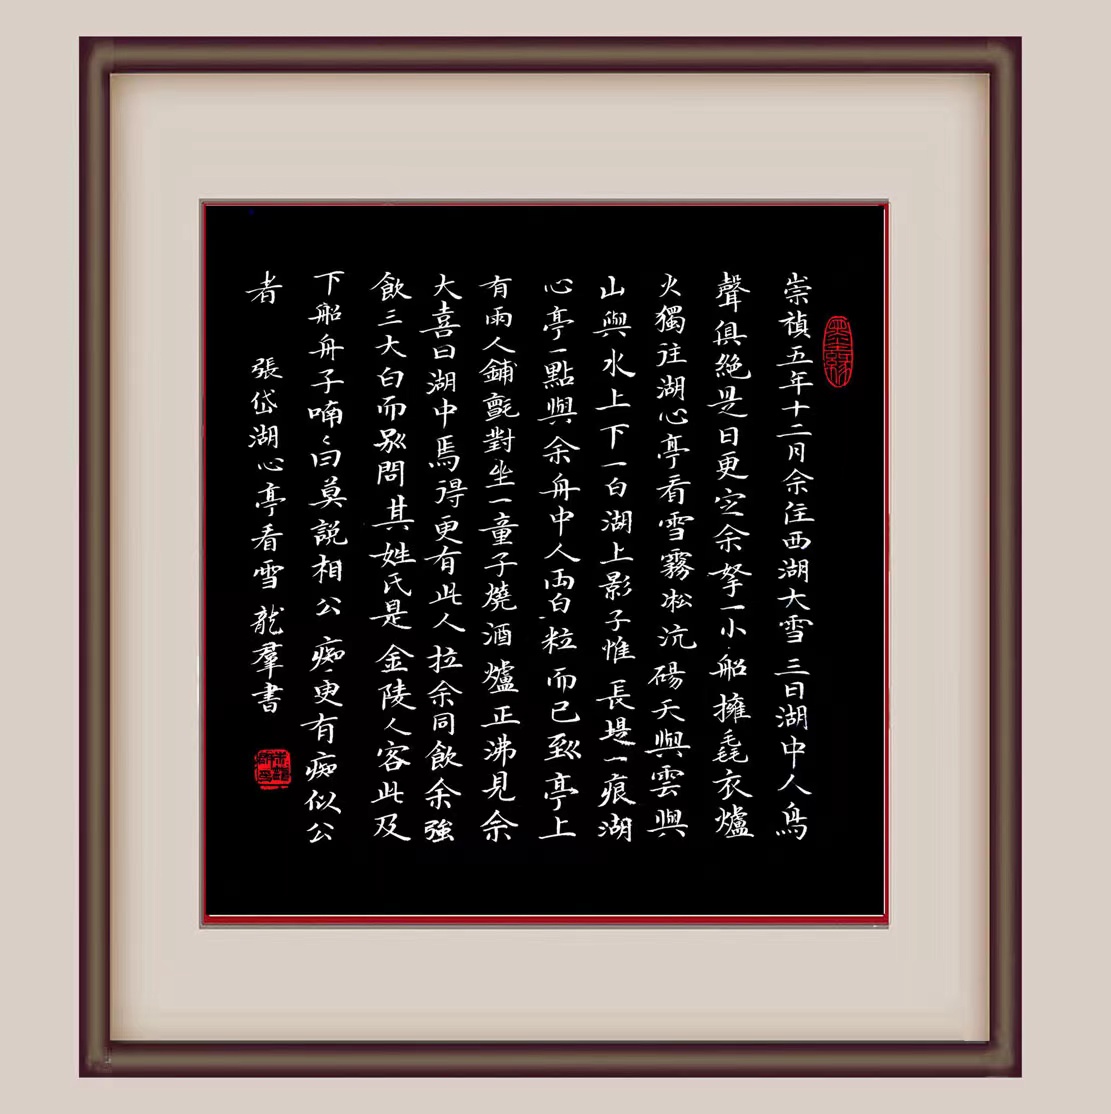 崇禎五年十二月余住西湖大雪三日湖中人鳥
聲俱絶是日更定余拏一小船擁毳衣爐
火獨往湖心亭看雪霧凇沆碭天與雲與
山與水上下一白湖上影子惟長堤一痕湖
心亭一點與余舟中人両白粒而已到亭上
有雨人鋪氈對坐一童子燒酒爐正沸見余
大喜曰湖中焉得更有此人拉余同飲余強
飲三大白而別問其姓氏是金陵人客此及
下船舟子喃々曰莫說相公痴更有痴似公
者 張岱湖心亭看雪 龍羣書